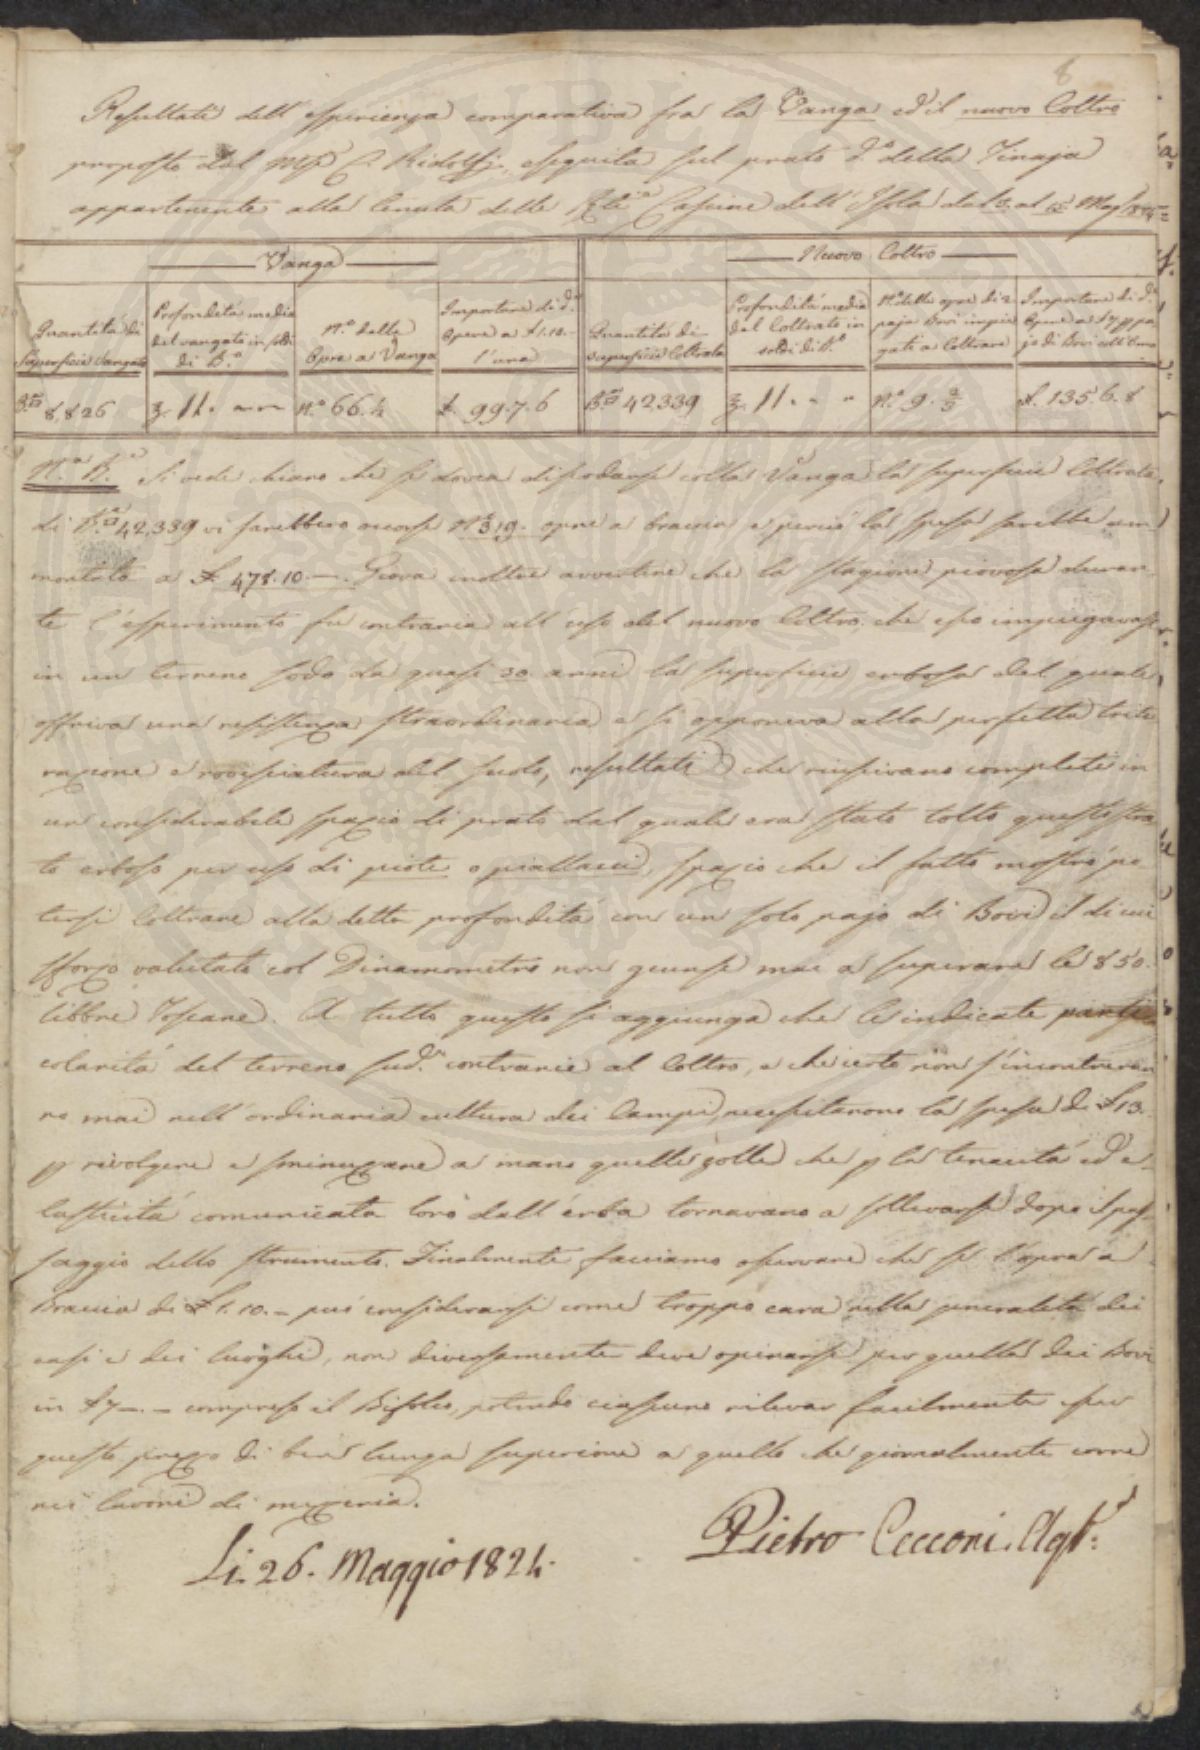 8
Resultati dell'esperienza comparativa fra la Vanga ed il nuovo Coltro
proposto dal C. Ridolfi, eseguita sul prato d.o della Tinaja
appartenente alla tenuta delle Cascine dell'Isola dal 3. al
Vanga
Nuovo Coltro
Quantità di Superficie Vangata
Profondità media del vangato in soldi di B.o
N.o delle Opre a Vanga
Importare di d.e Opere a £ 1.10.- l'una
Quantità di superficie Coltrata
Profondità media del Coltrato in soldi di B.o
N.o delle opre di 2 paja Bovi impiegati a Coltrare
Importare di d.e Opere a £ 7 p pajo di Bovi
B.a 8,826
11. - -
N.o 66.¼
£. 99.7.6
B.a 42,339
11. - -
N.o 9.⅔
£. 135.6.8
N.a B.a Si vede chiaro che se dovea dissodarsi colla Vanga la superficie Coltrata
di B.a 42,339 vi sarebbero occorse N.o 319. opre a braccia e perciò la spesa sarebbe am-
montata a £. 478.10.-. Giova inoltre avvertire che la stagione piovosa duran-
te l'esperimento fu contraria all'uso del nuovo Coltro. che esso impiegavasi
in un terreno sodo da quasi 30 anni la superficie erbosa del quale
offriva una resistenza straordinaria e si opponeva alla perfetta trite
razione e rovesciatura del suolo, resultati che riuscirano completi in
un considerabile spazio di prato dal quale era stato tolto questo stra
to erboso per uso di piote o piallacci, spazio che il fatto mostrò po-
tersi Coltrare alla detta profondità con un solo pajo di Bovi il di cui
sforzo valutato col Dinamometro non giunse mai a superare le 850.
libbre Toscane. A tutto questo si aggiunga che le indicate parti-
colarità del terreno sud.o contrarie al Coltro, e che certo non s'incontreran
no mai nell'ordinaria cultura dei Campi, necessitarono la spesa di £ 13.
p rivolgere e sminuzzare a mano quelle zolle che p la tenacità ed e-
lasticità comunicata loro dall'erba tornavano a sollevarsi dopo il pas-
saggio dello strumento. Finalmente facciamo osservare che se l'opra a
Braccia di £ 1.10.- può considerarsi come troppo cara nella generalità dei
casi e dei luoghi, non diversamente deve opinarsi per quella dei Bovi
in £ 7-.- compreso il Bifolco, potendo ciascuno rilevar facilmente esser
questo prezzo di ben lunga superiore a quello che giornalmente corre
nei lavori di mezzeria.
Li. 26. Maggio 1824.
Pietro Cecconi. Ag.te